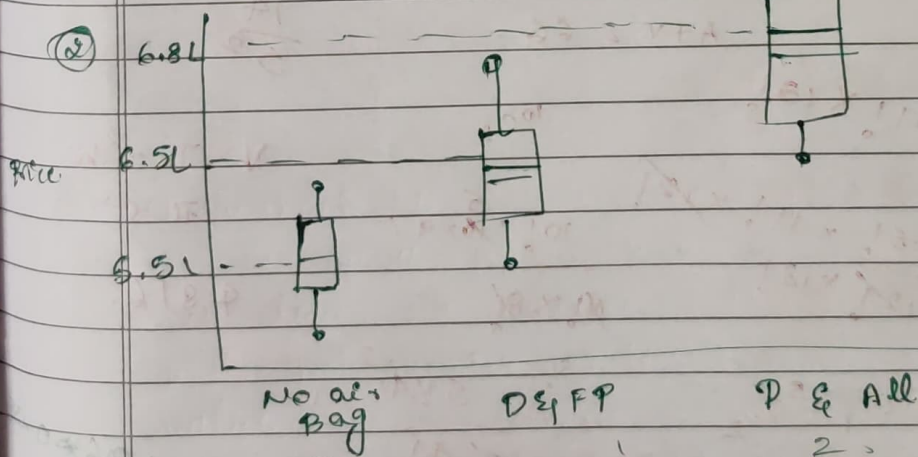 2
6.8L
Price
6.5L
5.5L
No air
Bag
D & FP
P & All
1
2